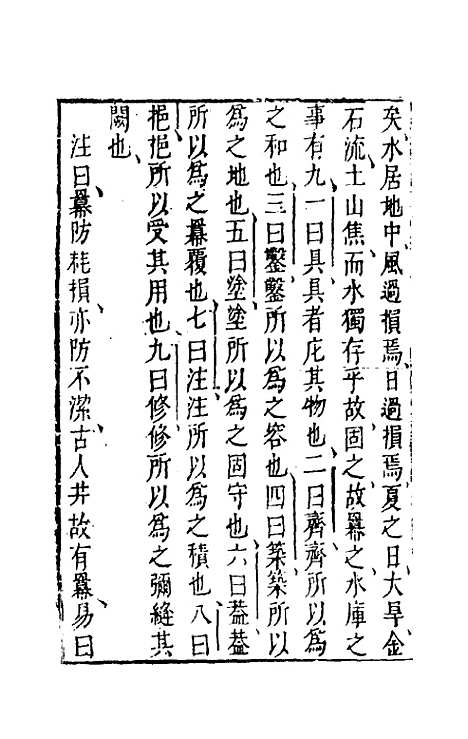 矣水居地中風過損焉日過損焉夏之日大旱金
石流土山焦而水獨存乎故固之故羃之水庫之
事有九一曰具具者庀其物也二曰齊齊所以爲
之和也三曰鑿鑿所以爲之容也四曰築築所以
爲之地也五曰塗塗所以爲之固守也六曰葢葢
所以爲之羃覆也七曰注注所以爲之積也八曰
挹挹所以受其用也九曰修修所以爲之彌縫其
闕也
注曰羃防耗損亦防不潔古人井故有羃易曰